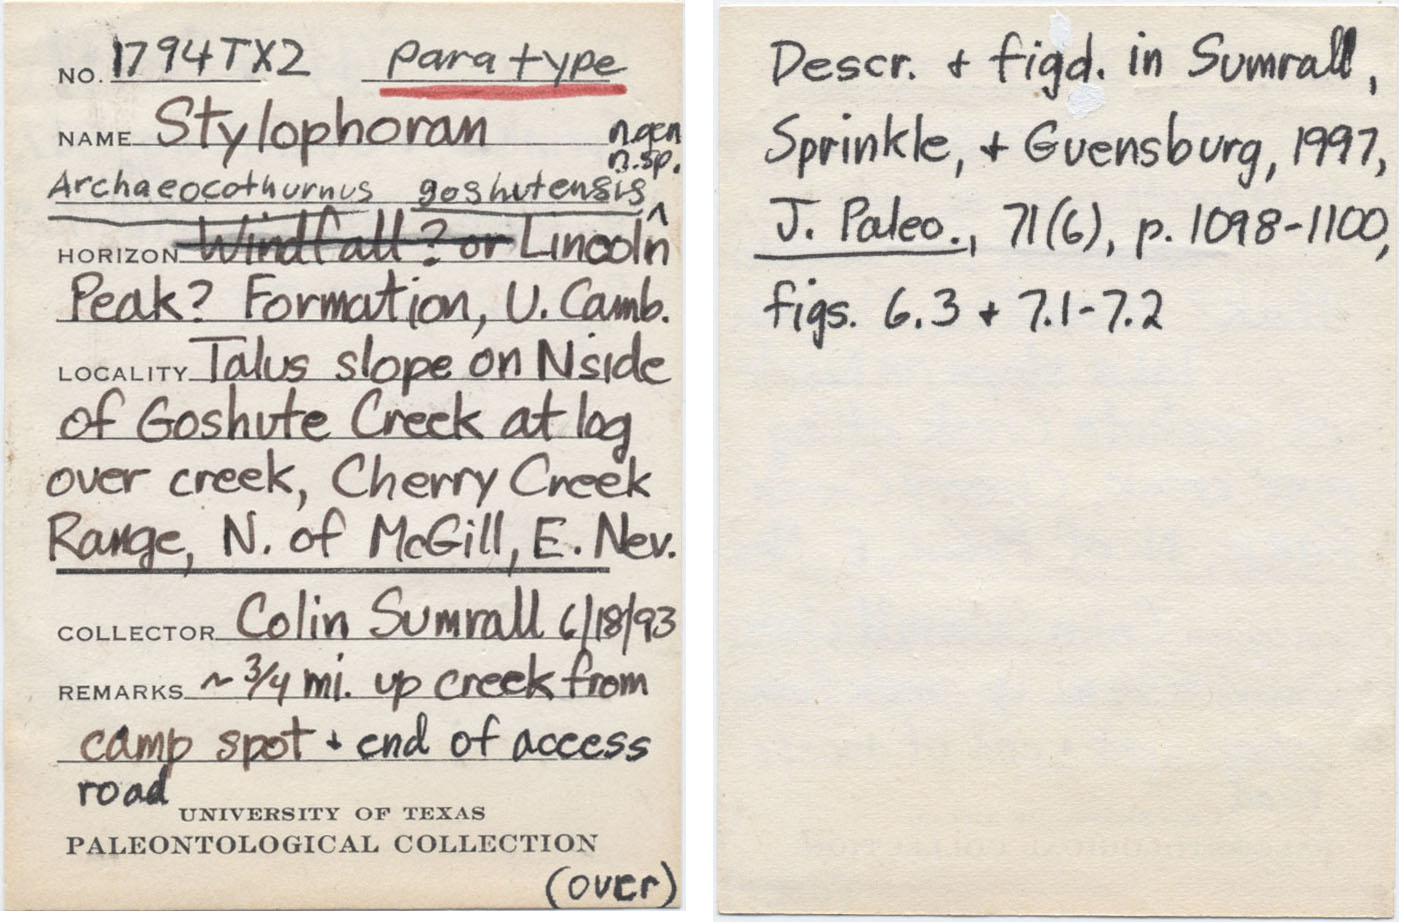 NO. 1794TX2 Paratype
NAME Stylophoran n.gen
n.sp.
Archaeocothurnus goshutensis ^
HORIZON Windfall? or Lincoln
Peak? Formation, U. Camb.
LOCALITY Talus slope on N side
of Goshute Creek at log
over creek, Cherry Creek
Range, N. of McGill, E. Nev.
COLLECTOR Colin Sumrall 6/18/93
REMARKS ~ 3/4 mi. up creek from
camp spot + end of access
road
UNIVERSITY OF TEXAS
PALEONTOLOGICAL COLLECTION
(over)
Descr. + figd. in Sumrall,
Sprinkle, + Guensburg, 1997,
J. Paleo., 71(6), p. 1098-1100,
figs. 6.3 + 7.1-7.2